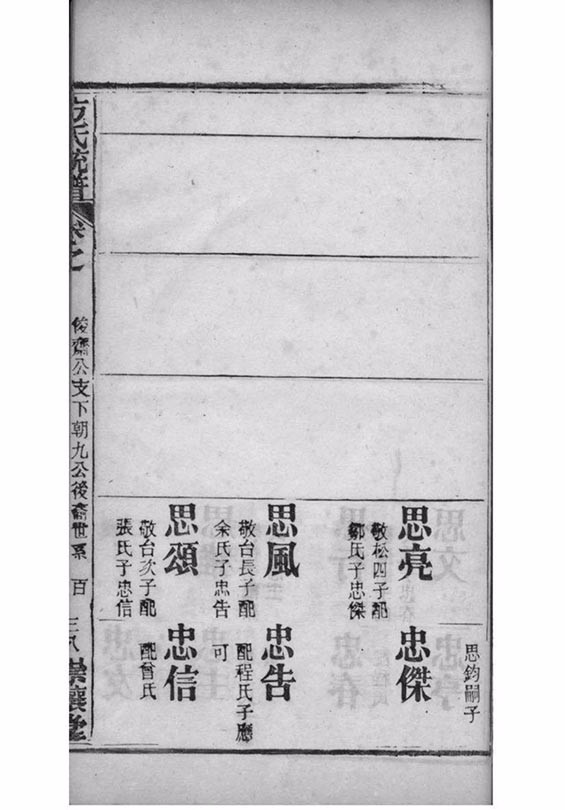 思鈞嗣子
思亮
敬松四子配
鄒氏子忠傑
忠傑
思風
敬台長子配
余氏子忠告
忠告
配程氏子應
可
思頌
敬台次子配
張氏子忠信
忠信
配曾氏
方氏統譜
卷之
俊齋公支下朝九公後裔世系
百
三八
崇讓堂